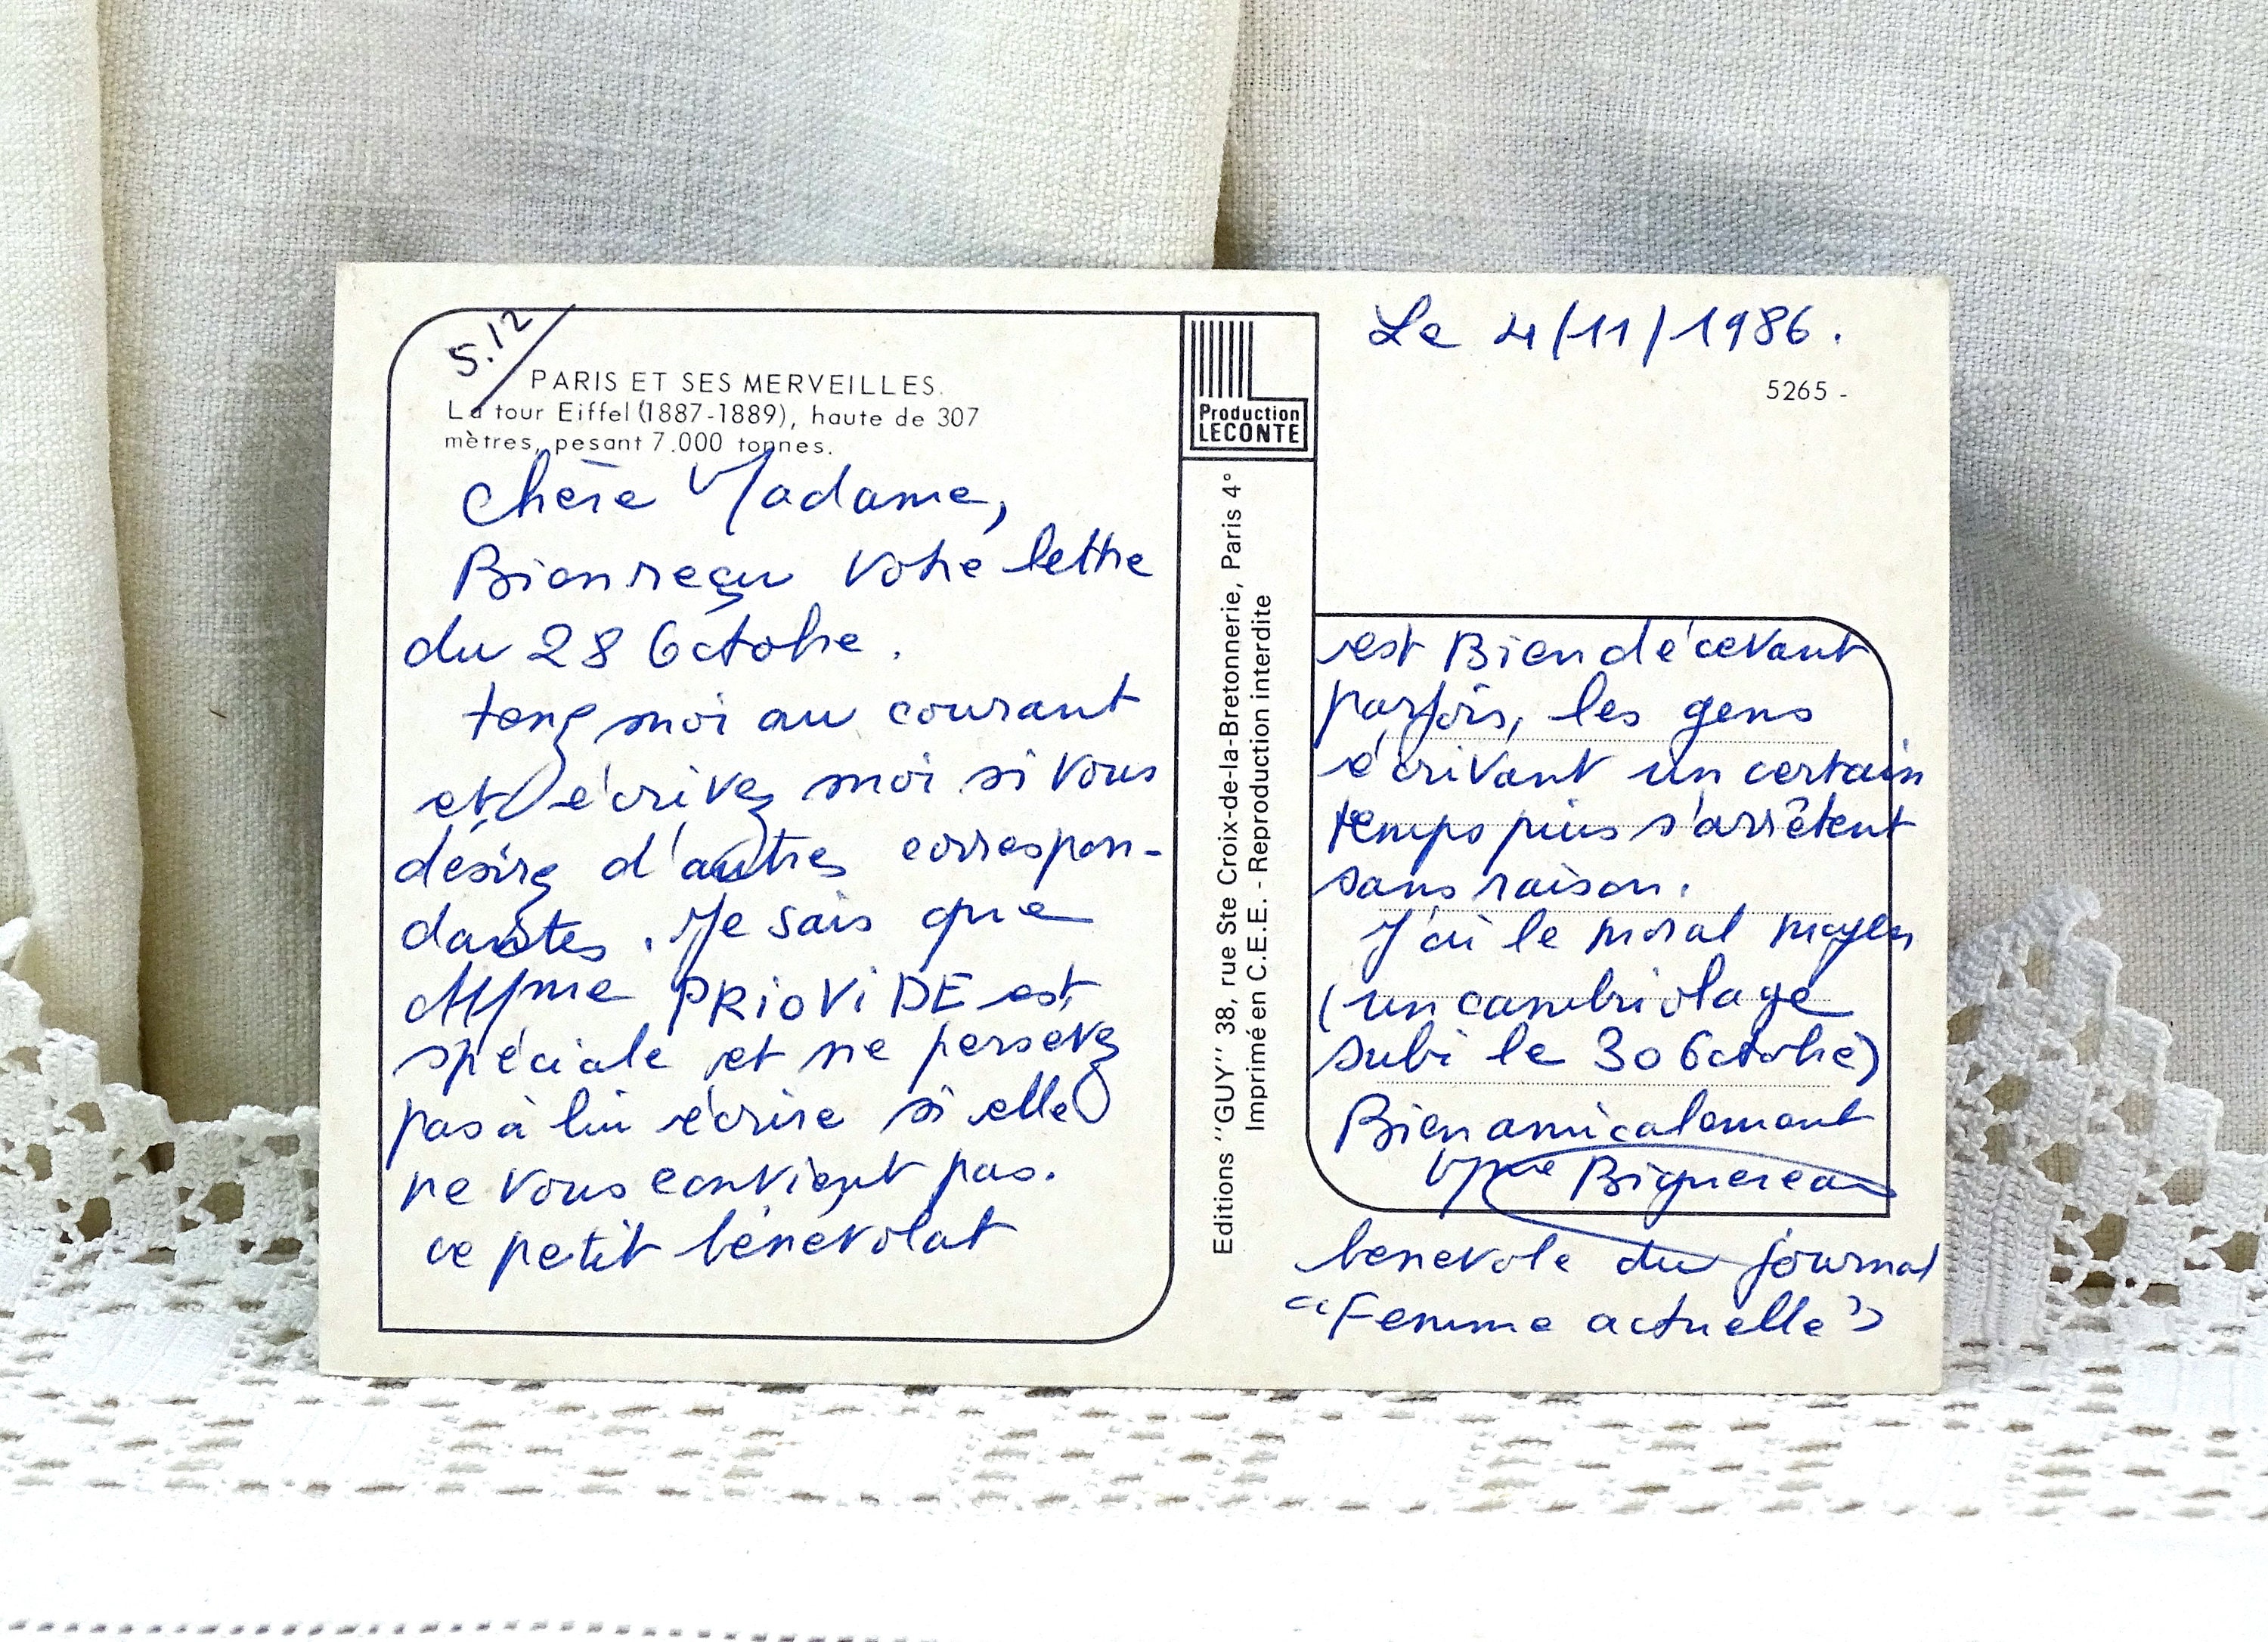 5.12
PARIS ET SES MERVEILLES.
La tour Eiffel (1887-1889), haute de 307
mètres, pesant 7.000 tonnes.
Chère Madame,
Bien reçu votre lettre
du 28 Octobre.
tenez moi au courant
et écrivez moi si vous
désirez d'autres correspon-
dantes. Je sais que
Mme PRiOViDE est
spéciale et ne persevez
pas à lui écrire si elle
ne vous convient pas.
ce petit bénévolat
Production
LECONTE
Editions "GUY" 38, rue Ste Croix-de-la-Bretonnerie, Paris 4°
Imprimé en C.E.E. - Reproduction interdite
Le 4/11/1986.
5265 -
est Bien décevant
parfois, les gens
écrivant un certain
temps puis s'arrêtent
sans raison.
J'ai le moral moyen
(un cambriolage
subi le 30 Octobre)
Bien amicalement
Mme Biguereau
bénévole du journal
"Femme actuelle"